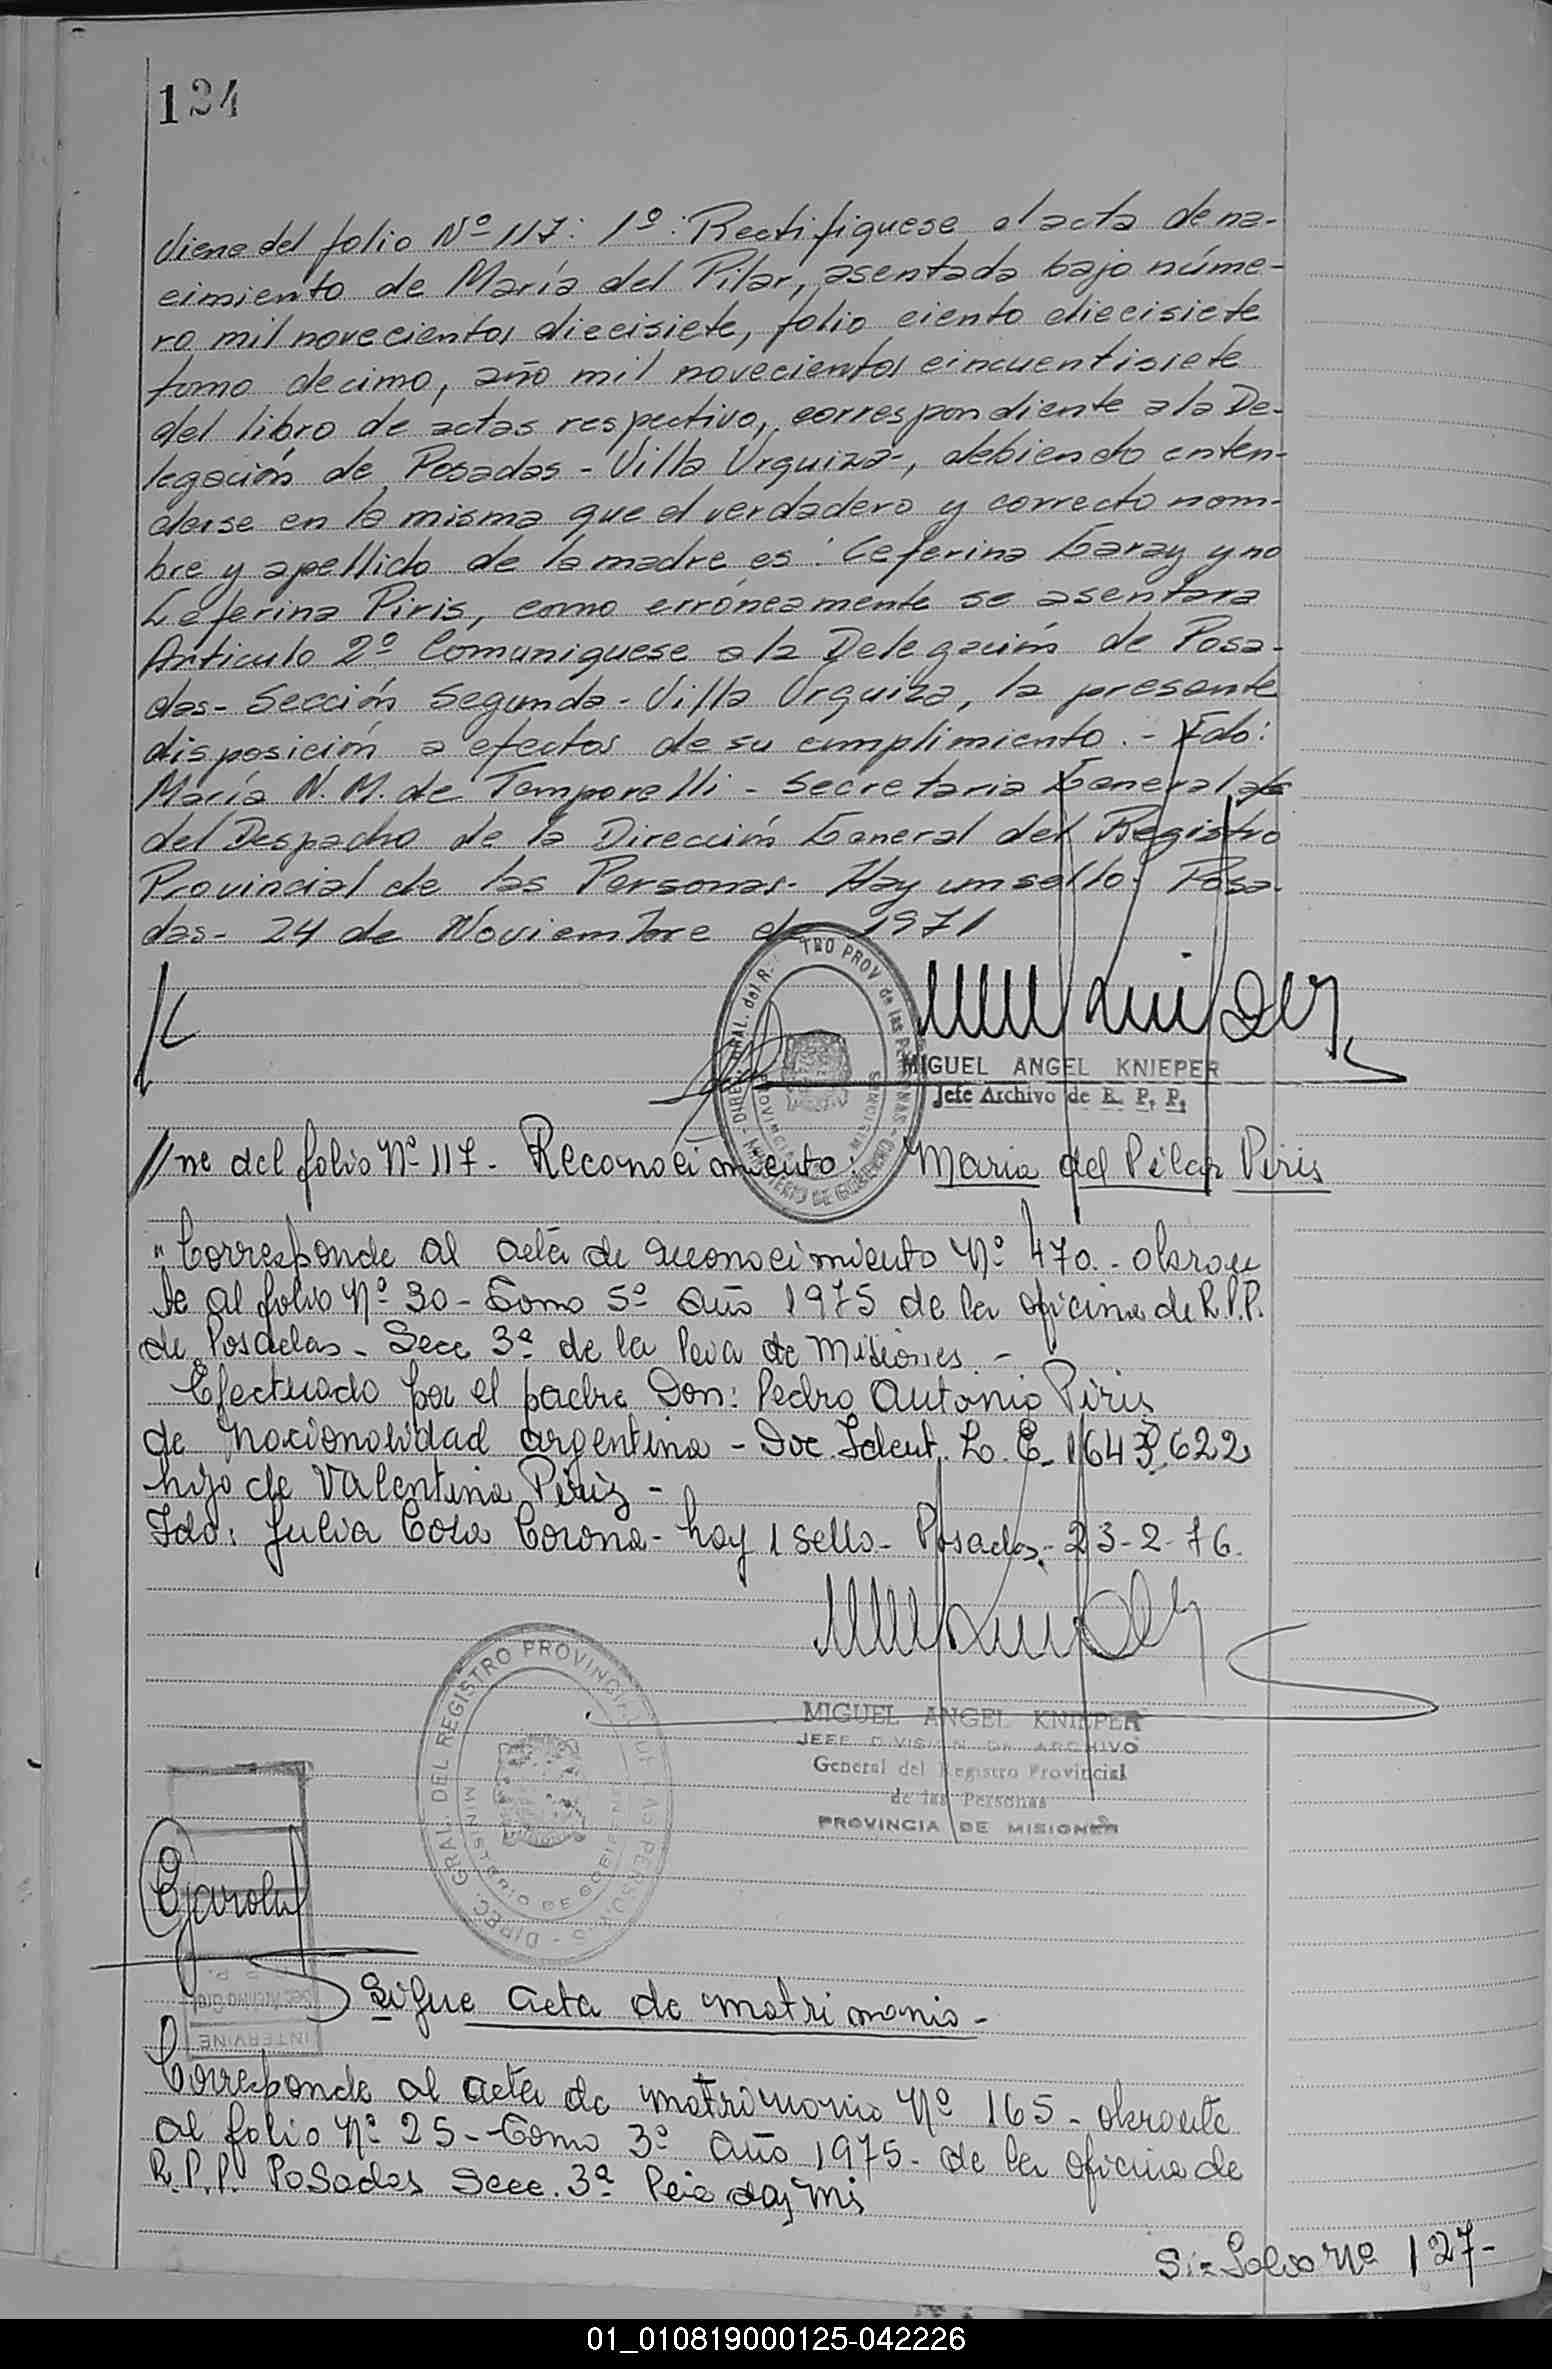 124
Viene del folio Nº 117: 1º: Rectifiquese el acta de na-
cimiento de María del Pilar, asentada bajo núme-
ro mil novecientos diecisiete, folio ciento diecisiete
tomo decimo, año mil novecientos cincuentisiete
del libro de actas respectivo, correspondiente a la De-
legación de Posadas - Villa Urquiza-, debiendo enten-
derse en la misma que el verdadero y correcto nom-
bre y apellido de la madre es: Ceferina Garay y no
Ceferina Piris, como erróneamente se asentara
Articulo 2º Comuniquese a la Delegación de Posa-
das- Sección Segunda - Villa Urquiza, la presente
disposición a efectos de su cumplimiento.- Fdo:
María N. M. de Temporelli - Secretaria General
del Despacho de la Dirección General del Registro
Provincial de las Personas- Hay un sello- Posa-
das- 24 de Noviembre de 1971
MIGUEL ANGEL KNIEPER
Jefe Archivo de R. P. P.
//ne del folio Nº 117- Reconocimiento: Maria del Pilar Piris
"Corresponde al acta de reconocimiento Nº 470.- obran
te al folio Nº 30 - Tomo 5º año 1975 de la oficina de R.P.P.
de Posadas - Secc 3ª de la Pcia de Misiones -
Efectuado por el padre Don: Pedro Antonio Piris
de nacionalidad argentina - Doc. Ident. L. E. 1643.622
hijo de Valentina Piris -
Fdo: Julia Corona - hay 1 sello - Posadas - 23-2-76.
DIREC. GRAL. DEL REGISTRO PROVINCIAL DE LAS PERSONAS
MINISTERIO DE GOBIERNO
MIGUEL ANGEL KNIEPER
JEFE DIVISION DE ARCHIVO
General del Registro Provincial
de las Personas
PROVINCIA DE MISIONES
INTERVINE
Sigue acta de matrimonio -
Corresponde al acta de matrimonio Nº 165 - obrante
al folio Nº 25 - Tomo 3º año 1975 - de la oficina de
R.P.P. Posadas Secc. 3ª Pcia
Folio Nº 127-
01_010819000125-042226